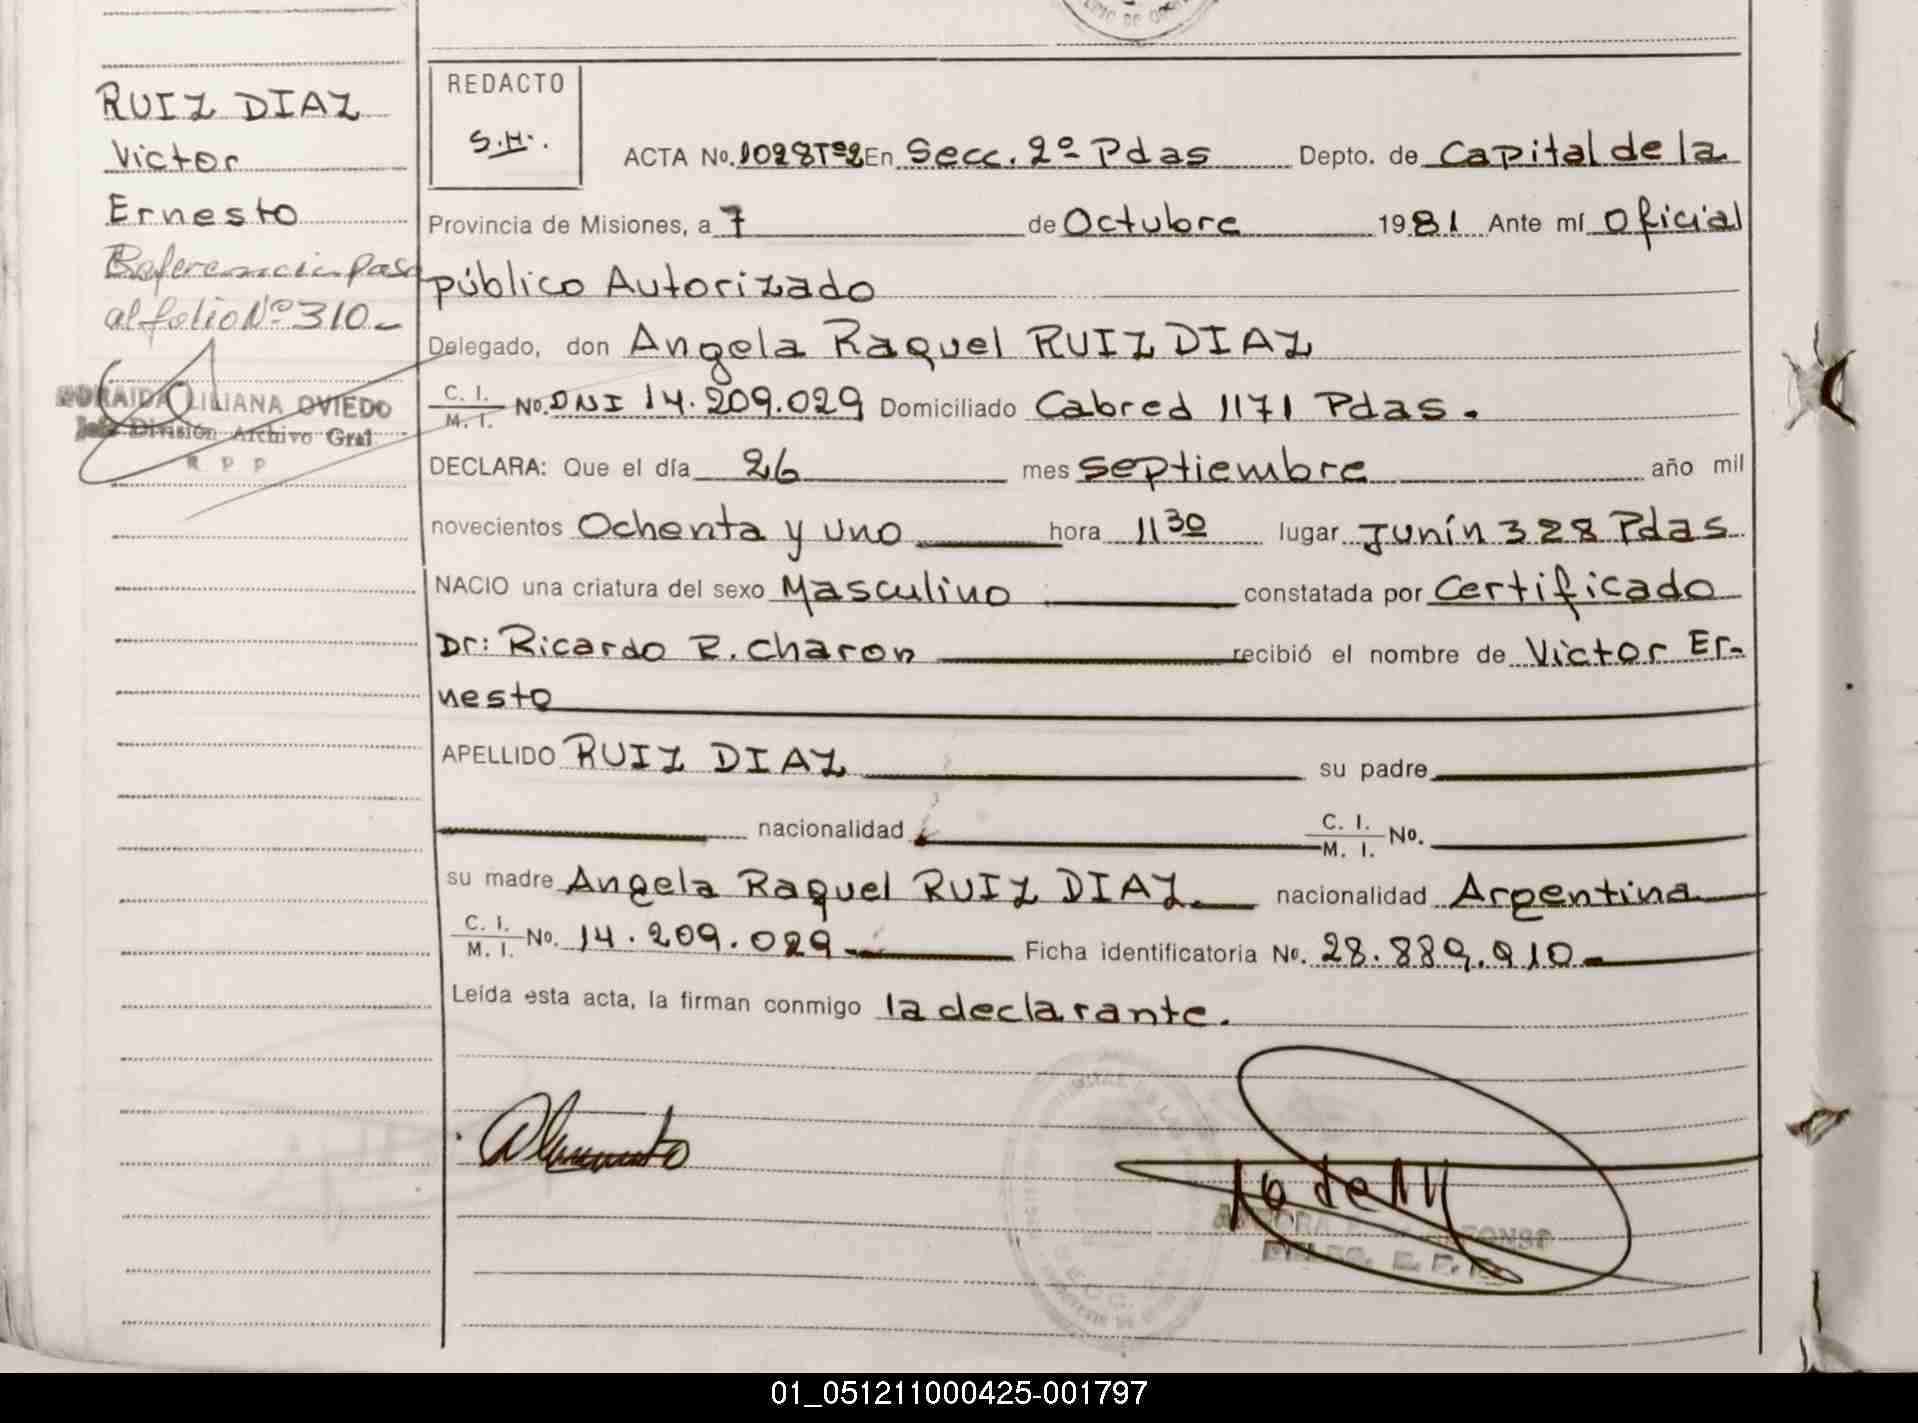 RUIZ DIAZ
Victor
Ernesto
Referencia pasa
al folio Nº 310_
LILIANA OVIEDO
Jefe División Archivo Gral
R P P
REDACTO
S.H.
ACTA No. 1028Tº2 En Secc. 2º Pdas Depto. de Capital de la
Provincia de Misiones, a 7 de Octubre 1981 Ante mí Oficial
público Autorizado
Delegado, don Angela Raquel RUIZ DIAZ
C. I. / M. I. No. DNI 14.209.029 Domiciliado Cabred 1171 Pdas.
DECLARA: Que el día 26 mes septiembre año mil
novecientos Ochenta y uno hora 11 30 lugar Junín 328 Pdas
NACIO una criatura del sexo Masculino constatada por Certificado
Dr: Ricardo R. Charon recibió el nombre de Victor Er-
nesto
APELLIDO RUIZ DIAZ su padre
nacionalidad C. I. / M. I. No.
su madre Angela Raquel RUIZ DIAZ. nacionalidad Argentina
C. I. / M. I. No. 14.209.029 Ficha identificatoria No. 28.889.910
Leída esta acta, la firman conmigo la declarante.
01_051211000425-001797